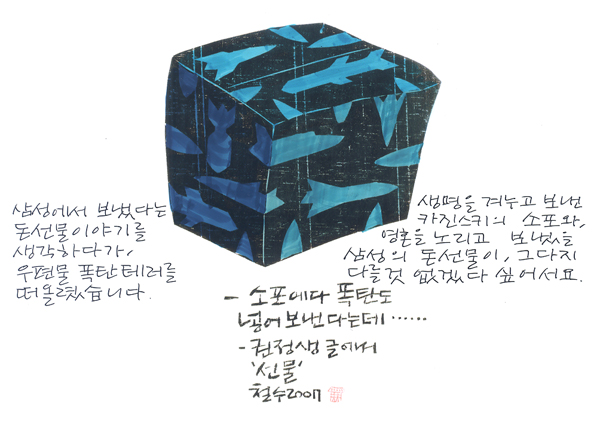 삼성에서 보냈다는
돈선물이야기를
생각하다가,
우편물 폭탄테러를
떠올렸습니다.
생명을 겨누고 보낸
카진스키의 소포와,
영혼을 노리고 보냈을
삼성의 돈선물이, 그다지
다를것 없겠다 싶어서요.
- 소포에다 폭탄도
넣어보낸다는데……
- 권정생 글에서
'선물'
철수2007